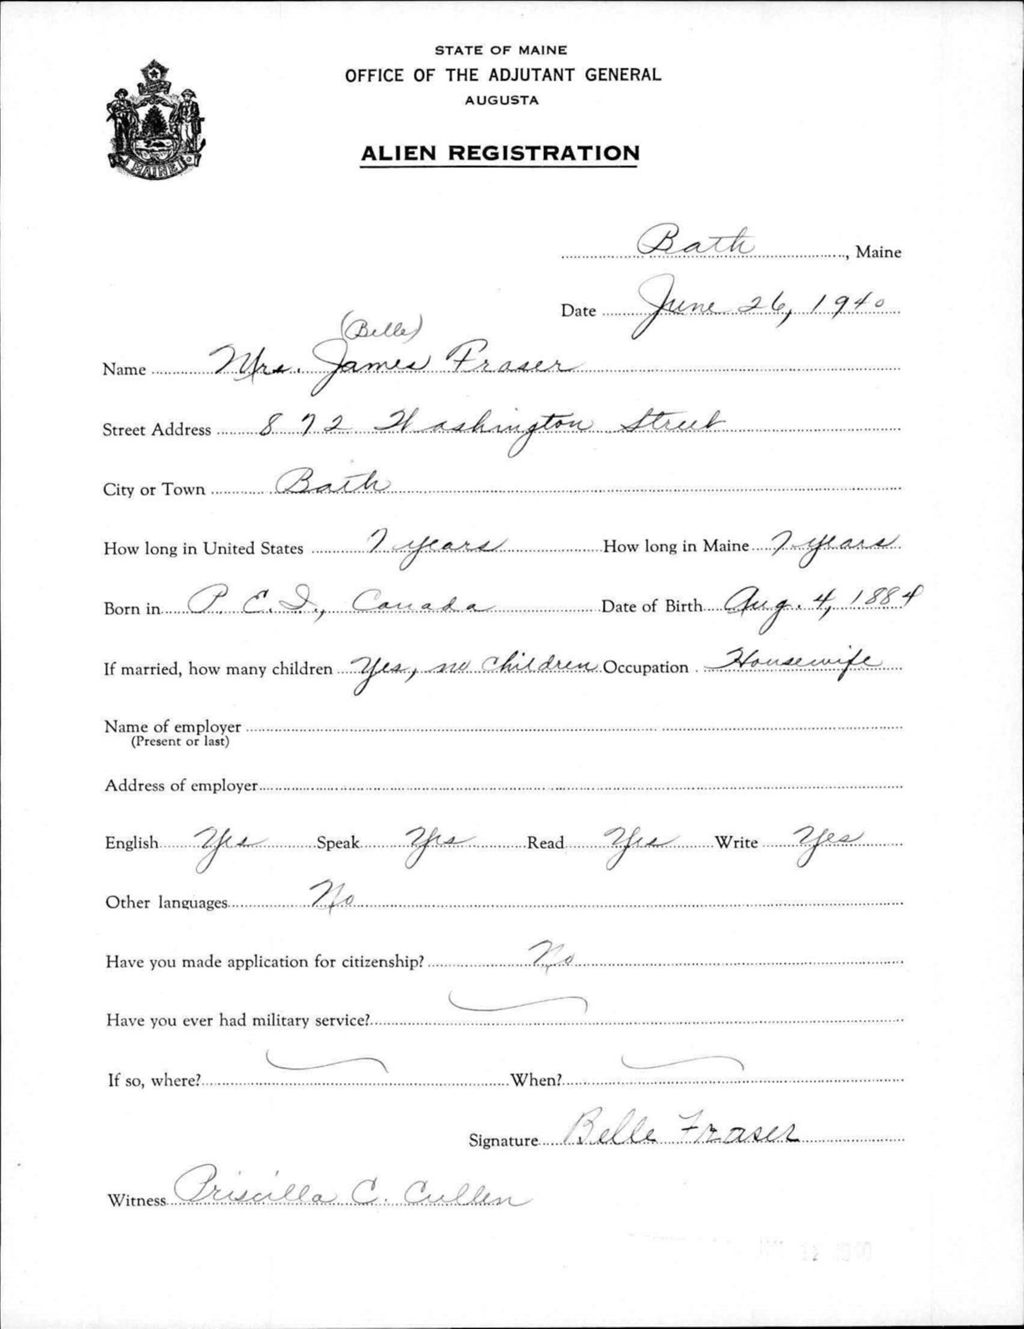 STATE OF MAINE
OFFICE OF THE ADJUTANT GENERAL
AUGUSTA
ALIEN REGISTRATION
MAINE
Bath, Maine
Date June 26, 1940
(Belle)
Name Mrs. James Fraser
Street Address 872 Washington Street
City or Town Bath
How long in United States 7 years How long in Maine 7 years
Born in P. E. I., Canada Date of Birth Aug. 4, 1884
If married, how many children Yes, no children Occupation Housewife
Name of employer
(Present or last)
Address of employer
English Yes Speak Yes Read Yes Write Yes
Other languages No
Have you made application for citizenship? No
Have you ever had military service?
If so, where? When?
Signature Belle Fraser
Witness Priscilla C. Cullen